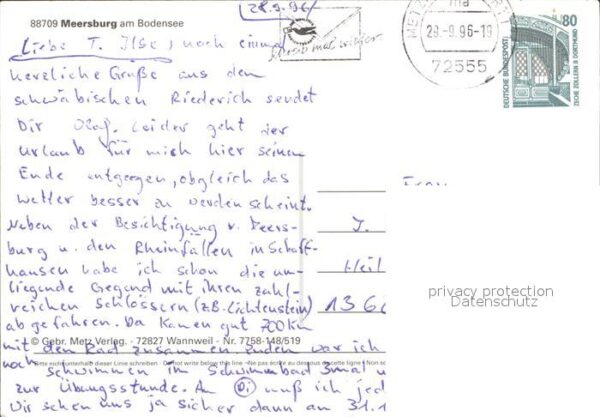 88709 Meersburg am Bodensee
(28.9.96)
Liebe T. Ilse, noch einmal
herzliche Grüße aus dem
schwäbischen Riederich sendet
Dir Olaf. Leider geht der
Urlaub für mich hier seinem
Ende entgegen, obgleich das
Wetter besser zu werden scheint.
Neben der Besichtigung v. Meers-
burg u. den Rheinfällen in Schaff-
hausen habe ich schon die um-
liegende Gegend mit ihren zahl-
reichen Schlössern (z.B. Lichtenstein)
abgefahren. Da kamen gut 700 km
mit dem Rad zusammen. Zudem war ich
noch schwimmen im Schwimmbad 3mal u.
zur Übungsstunde. Am Di muß ich jed
Wir sehen uns ja sicher dann am 31.1
© Gebr. Metz Verlag. - 72827 Wannweil - Nr. 7758-148/519
Bitte nicht unterhalb dieser Linie schreiben - Do not write below this line - Ne pas écrire au dessous de cette ligne
Schreib mal wieder
METZINGEN
ma
29.-9.96-19
72555
80
DEUTSCHE BUNDESPOST
ZECHE ZOLLERN II DORTMUND
Frau
I.
Heil
136
privacy protection
Datenschutz